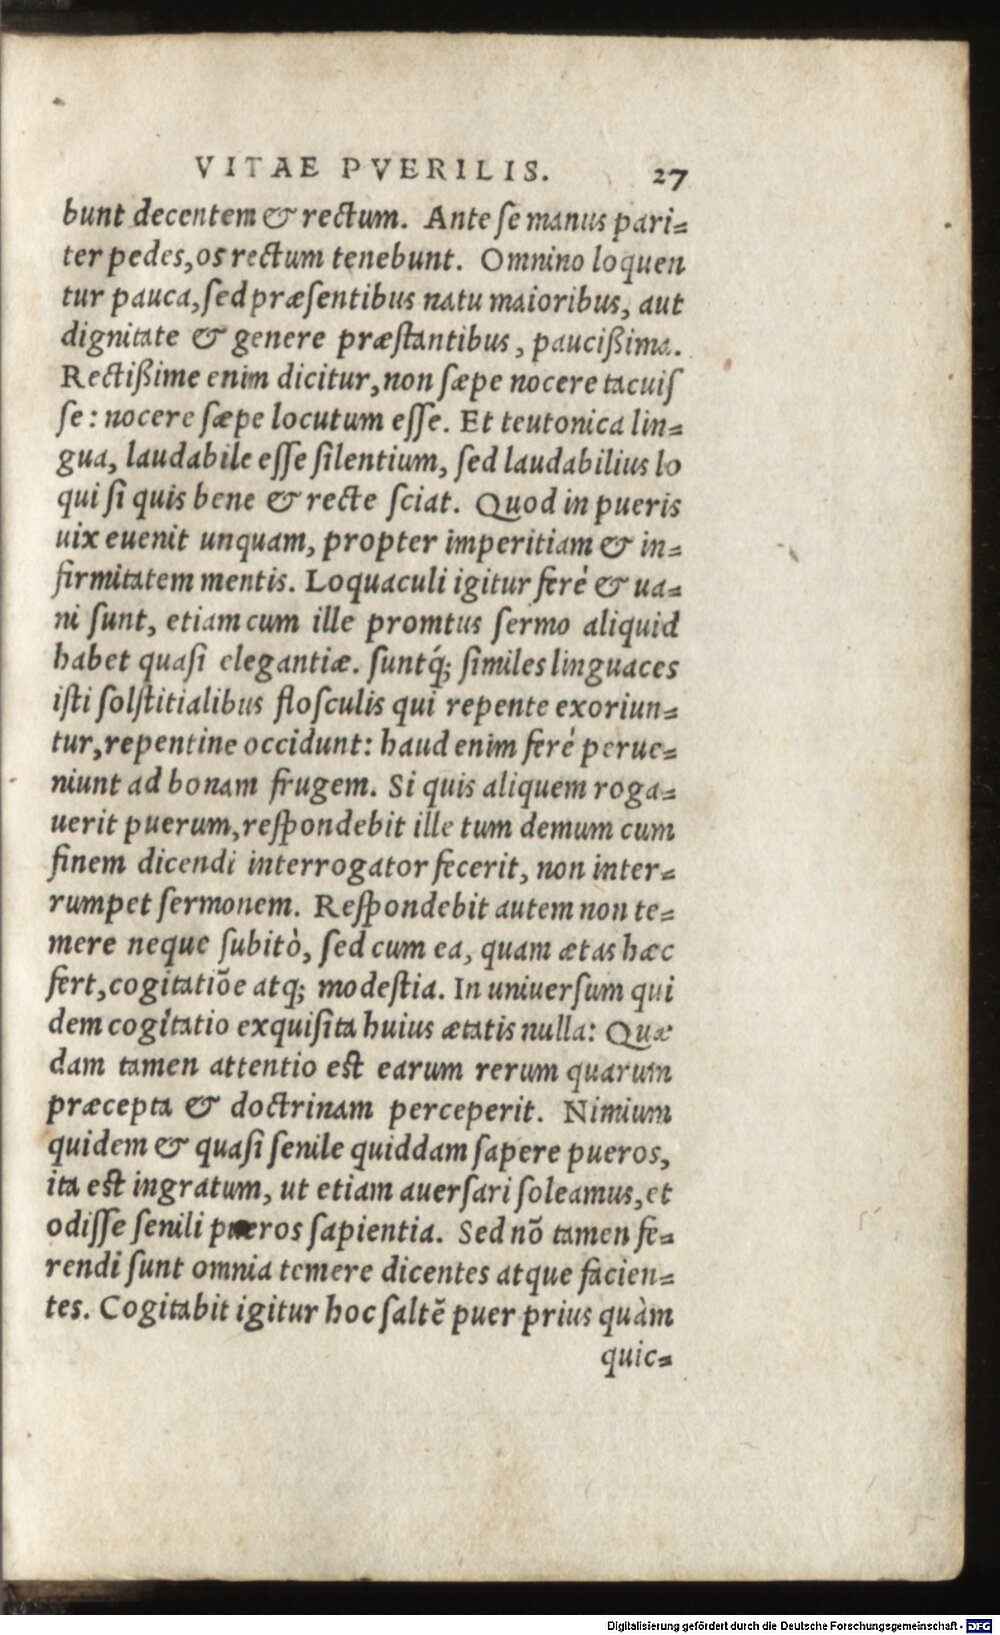 VITAE PVERILIS. 27
bunt decentem & rectum. Ante se manus pari=
ter pedes, os rectum tenebunt. Omnino loquen
tur pauca, sed præsentibus natu maioribus, aut
dignitate & genere præstantibus, pauciſsima.
Rectiſsime enim dicitur, non sæpe nocere tacuiſ
ſe: nocere ſæpe locutum eſſe. Et teutonica lin=
gua, laudabile eſſe ſilentium, ſed laudabilius lo
qui ſi quis bene & recte ſciat. Quod in pueris
uix euenit unquam, propter imperitiam & in=
firmitatem mentis. Loquaculi igitur ferè & ua=
ni ſunt, etiam cum ille promtus ſermo aliquid
habet quaſi elegantiæ. ſuntq́; ſimiles linguaces
iſti ſolſtitialibus floſculis qui repente exoriun=
tur, repentine occidunt: haud enim ferè perue=
niunt ad bonam frugem. Si quis aliquem roga=
uerit puerum, reſpondebit ille tum demum cum
finem dicendi interrogator fecerit, non inter=
rumpet ſermonem. Reſpondebit autem non te=
mere neque ſubitò, ſed cum ea, quam ætas hæc
fert, cogitatiõe atq; modeſtia. In uniuerſum qui
dem cogitatio exquiſita huius ætatis nulla: Quæ
dam tamen attentio eſt earum rerum quarum
præcepta & doctrinam perceperit. Nimium
quidem & quaſi ſenile quiddam ſapere pueros,
ita eſt ingratum, ut etiam auerſari ſoleamus, et
odiſſe ſenili pueros ſapientia. Sed nõ tamen fe=
rendi ſunt omnia temere dicentes atque facien=
tes. Cogitabit igitur hoc ſaltẽ puer prius quàm
quic=
Digitalisierung gefördert durch die Deutsche Forschungsgemeinschaft - DFG